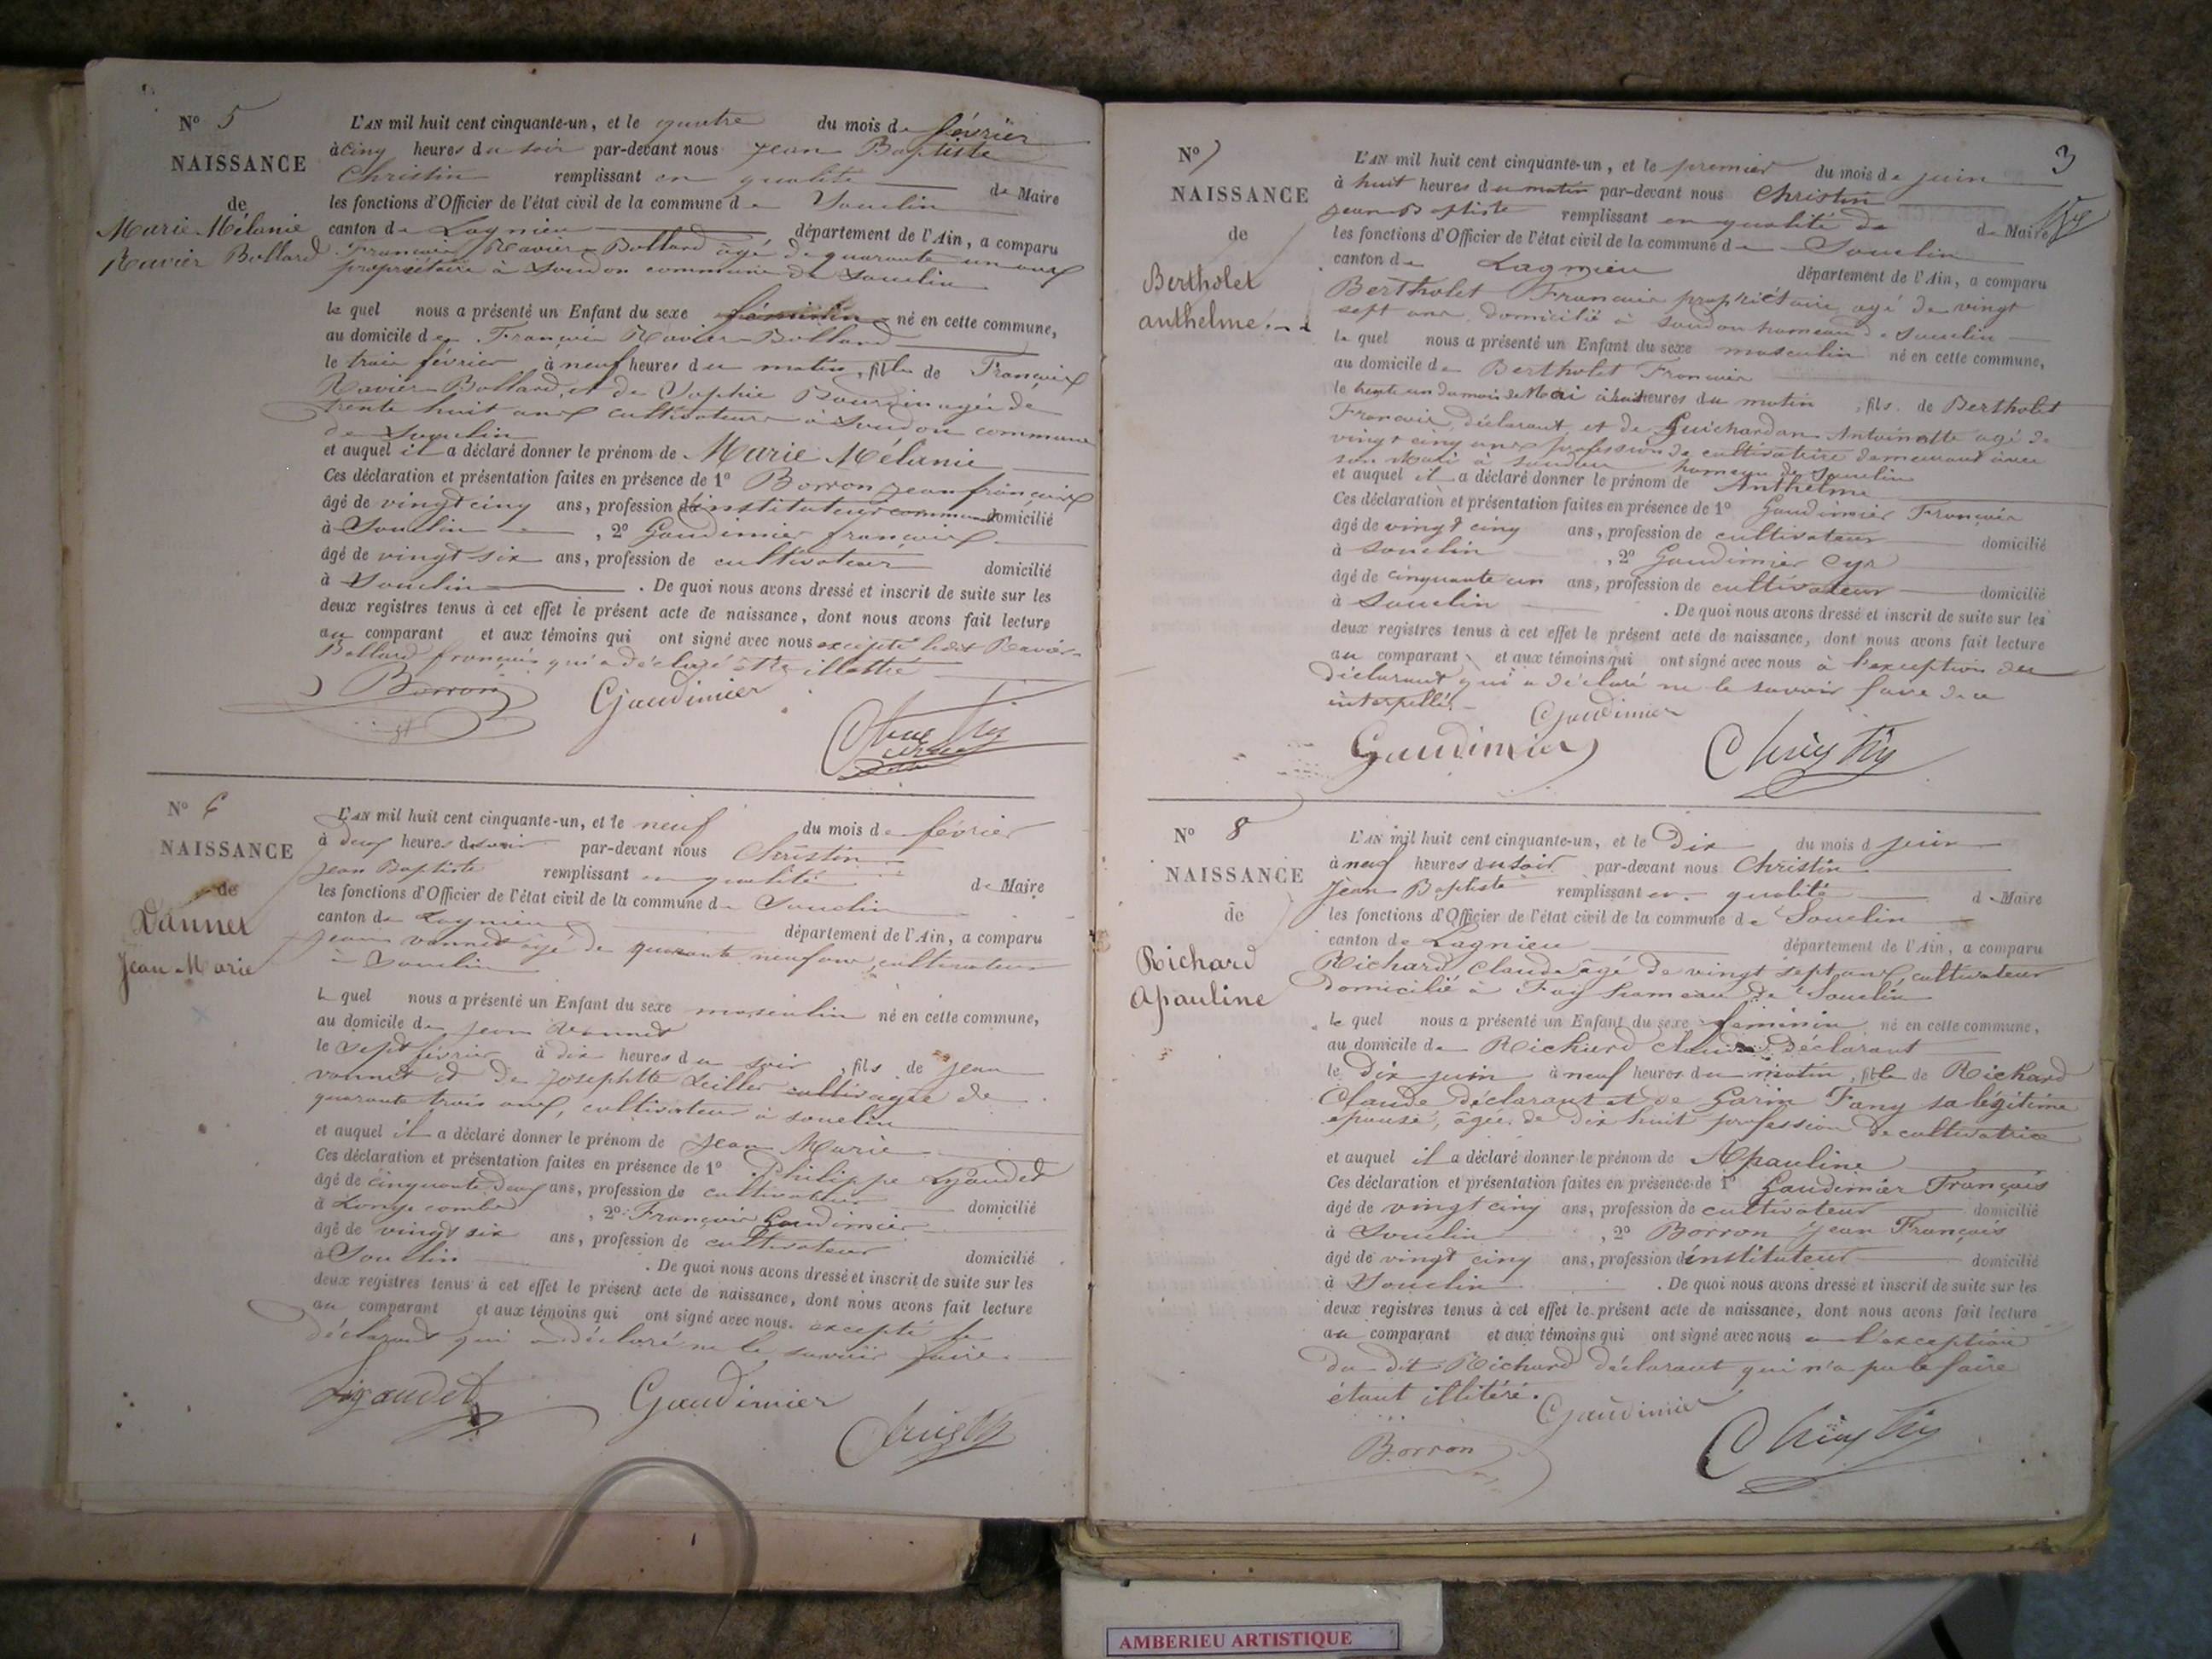 N° 5
NAISSANCE
de
Marie Mélanie
Ravier Bollard
L'AN mil huit cent cinquante-un, et le quatre du mois de février
à cinq heures du soir par-devant nous Jean Baptiste
Christin remplissant en qualité de Maire
les fonctions d'Officier de l'état civil de la commune de Souclin
canton de Lagnieu département de l'Ain, a comparu
François Ravier-Bollard âgé de quarante un ans
propriétaire à Soudon commune de Souclin
le quel nous a présenté un Enfant du sexe féminin né en cette commune,
au domicile de François Ravier-Bollard
le trois février à neuf heures du matin, fille de François
Ravier-Bollard, et de Sophie Bourdin agée de
trente huit ans cultivateurs à Soudon commune
de Souclin
et auquel il a déclaré donner le prénom de Marie Mélanie
Ces déclaration et présentation faites en présence de 1° Borron Jean françois
âgé de vingt cinq ans, profession d'instituteur communal domicilié
à Souclin , 2° Gaudimier françois
âgé de vingt six ans, profession de cultivateur domicilié
à Souclin . De quoi nous avons dressé et inscrit de suite sur les
deux registres tenus à cet effet le présent acte de naissance, dont nous avons fait lecture
au comparant et aux témoins qui ont signé avec nous excepté ledit Ravier-
Bollard françois qui a déclaré être illettré
Borron Gaudimier Christin
N° 6
NAISSANCE
de
Vannet
Jean Marie
L'AN mil huit cent cinquante-un, et le neuf du mois de février
à deux heures du soir par-devant nous Christin
Jean Baptiste remplissant en qualité de Maire
les fonctions d'Officier de l'état civil de la commune de Souclin
canton de Lagnieu département de l'Ain, a comparu
Jean vannet âgé de quarante neuf ans, cultivateur
à Souclin
le quel nous a présenté un Enfant du sexe masculin né en cette commune,
au domicile de jean vannet
le sept février à dix heures du soir, fils de jean
vannet et de Josephtte Leiller agée de
quarante trois ans, cultivateur à souclin
et auquel il a déclaré donner le prénom de Jean Marie
Ces déclaration et présentation faites en présence de 1° Philippe Ligaudet
âgé de cinquante deux ans, profession de cultivateur domicilié
à Longecombe , 2° François Gaudimier
âgé de vingt six ans, profession de cultivateur domicilié
à Souclin . De quoi nous avons dressé et inscrit de suite sur les
deux registres tenus à cet effet le présent acte de naissance, dont nous avons fait lecture
au comparant et aux témoins qui ont signé avec nous. excepté le
déclarant qui a déclaré ne le savoir faire.
Ligaudet Gaudimier Christin
3
N° 7
NAISSANCE
de
Bertholet
anthelme
L'AN mil huit cent cinquante-un, et le premier du mois de juin
à huit heures du matin par-devant nous Christin
Jean Baptiste remplissant en qualité de de Maire
les fonctions d'Officier de l'état civil de la commune de Souclin
canton de Lagnieu département de l'Ain, a comparu
Bertholet François propriétaire, agé de vingt
sept ans, domicilié à soudon hameau de Souclin
le quel nous a présenté un Enfant du sexe masculin né en cette commune,
au domicile de Bertholet François
le trente un du mois de Mai à huit heures du matin, fils de Bertholet
François, déclarant et de Guichardan Antoinette agé de
vingt cinq ans profession de cultivatrice demeurant avec
son Mari à soudon hameau de Souclin
et auquel il a déclaré donner le prénom de Anthelme
Ces déclaration et présentation faites en présence de 1° Gaudimier François
âgé de vingt cinq ans, profession de cultivateur domicilié
à Souclin , 2° Gaudimier Cyr
âgé de cinquante un ans, profession de cultivateur domicilié
à Souclin . De quoi nous avons dressé et inscrit de suite sur les
deux registres tenus à cet effet le présent acte de naissance, dont nous avons fait lecture
au comparant et aux témoins qui ont signé avec nous à l'exception du
déclarant qui a déclaré ne le savoir faire de ce
interpellé.
Gaudimier
Gaudimier Christin
N° 8
NAISSANCE
de
Richard
Apauline
L'AN mil huit cent cinquante-un, et le Dix du mois d juin
à neuf heures du soir par-devant nous Christin
Jean Baptiste remplissant en qualité de Maire
les fonctions d'Officier de l'état civil de la commune de Souclin
canton de Lagnieu département de l'Ain, a comparu
Richard Claude âgé de vingt sept ans, cultivateur
domicilié à Fay hameau de Souclin
le quel nous a présenté un Enfant du sexe féminin né en cette commune,
au domicile de Richard Claude Déclarant
le Dix juin à neuf heures du matin, fille de Richard
Claude déclarant et de Garin Fany sa légitime
epouse, âgée de Dix huit profession de cultivatrice
et auquel il a déclaré donner le prénom de Apauline
Ces déclaration et présentation faites en présence de 1° Gaudimier François
âgé de vingt cinq ans, profession de cultivateur domicilié
à Souclin , 2° Borron Jean François
âgé de vingt cinq ans, profession d'instituteur domicilié
à Souclin . De quoi nous avons dressé et inscrit de suite sur les
deux registres tenus à cet effet le présent acte de naissance, dont nous avons fait lecture
au comparant et aux témoins qui ont signé avec nous a l'exception
du dit Richard déclarant qui n'a pu le faire
étant illitéré.
Gaudimier
Borron Christin
AMBERIEU ARTISTIQUE